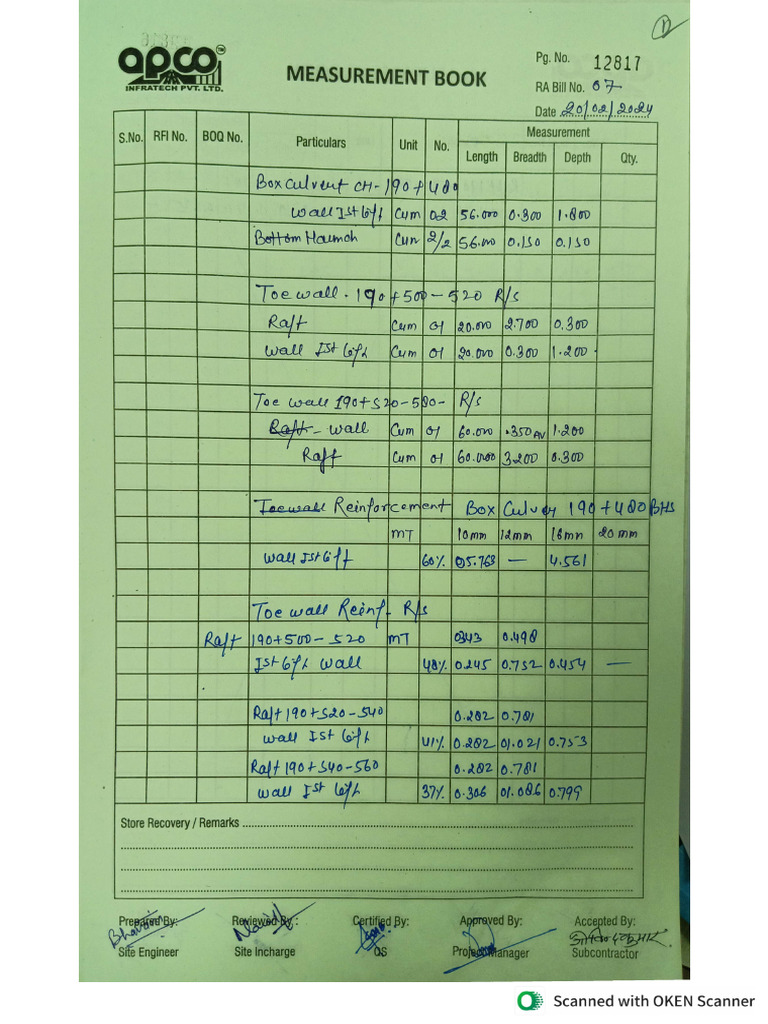 1
apco™
INFRATECH PVT. LTD.
MEASUREMENT BOOK
Pg. No. 12817
RA Bill No. 07
Date 20/02/2024
S.No. RFI No. BOQ No. Particulars Unit No. Measurement
Length Breadth Depth Qty.
Box culvert CH-190+480
wall Ist lift Cum 02 56.000 0.300 1.800
Bottom Haunch Cum 2/2 56.000 0.150 0.150
Toe wall. 190+500-520 R/s
Raft Cum 01 20.000 2.700 0.300
wall Ist lift Cum 01 20.000 0.300 1.200
Toe wall 190+520-580- R/s
Raft- wall Cum 01 60.000 .350 AV 1.200
Raft Cum 01 60.000 3.200 0.300
Toe wall Reinforcement Box Culver 190+480 BHS
MT 10mm 12mm 16mm 20mm
wall Ist lift 60% 05.763 — 4.561
Toe wall Reinf. R/s
Raft 190+500-520 MT 0343 0.498
Ist lift wall 48% 0.245 0.752 0.454 —
Raft 190+520-540 0.282 0.781
wall Ist lift 41% 0.282 01.021 0.753
Raft 190+540-560 0.282 0.781
wall Ist lift 37% 0.306 01.086 0.799
Store Recovery / Remarks
Prepared By: Reviewed By: Certified By: Approved By: Accepted By:
Site Engineer Site Incharge QS Project Manager Subcontractor
Scanned with OKEN Scanner